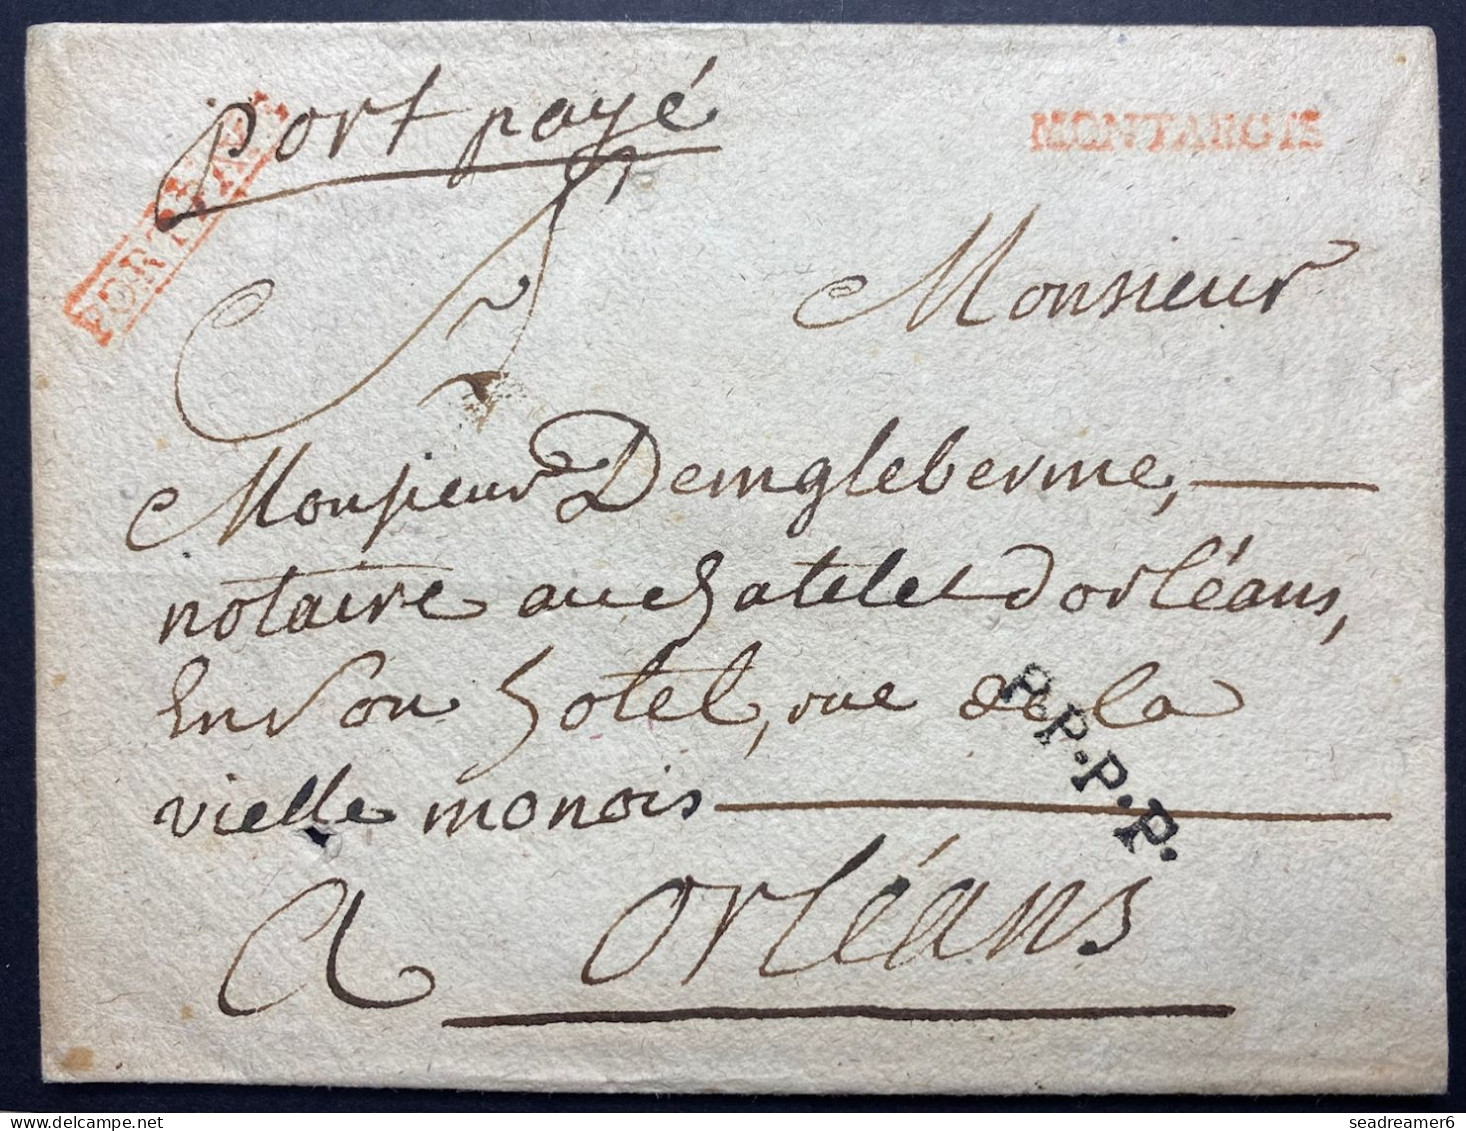 Port payé
MONTARGIS
PORT PAYÉ
Monsieur
Monsieur Demgleberme,
notaire au chatelet d'orléans,
En Son hotel, rue de la
vielle monois
P.P.P.P.
A orléans
seadreamer6